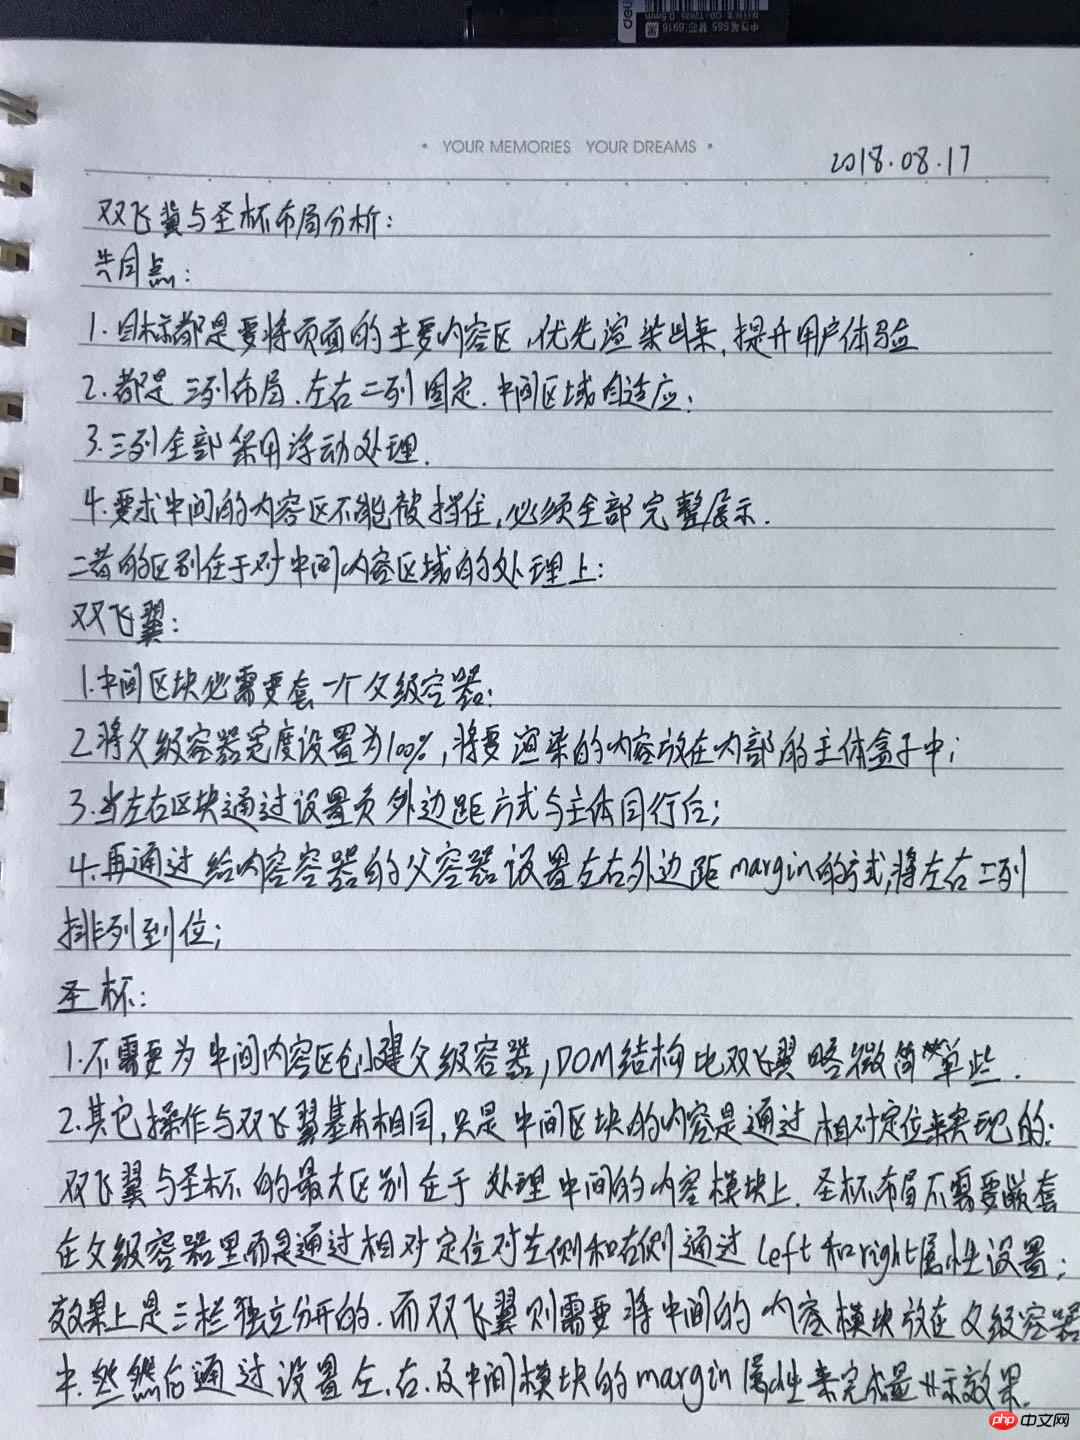 deli
0.5mm
中性笔S65 替芯:6916
YOUR MEMORIES YOUR DREAMS
2018.08.17
双飞翼与圣杯布局分析:
共同点:
1.目标都是要将页面的主要内容区,优先渲染出来,提升用户体验
2.都是三列布局.左右二列固定.中间区域自适应;
3.三列全部采用浮动处理.
4.要求中间的内容区不能被挡住,必须全部完整展示.
二者的区别在于对中间内容区域的处理上:
双飞翼:
1.中间区块必需要套一个父级容器;
2.将父级容器宽度设置为100%,将要渲染的内容放在内部的主体盒子中;
3.当左右区块通过设置负外边距方式与主体同行后;
4.再通过给内容容器的父容器设置左右外边距margin的方式,将左右二列
排列到位;
圣杯:
1.不需要为中间内容区创建父级容器,DOM结构比双飞翼略微简单些.
2.其它操作与双飞翼基本相同,只是中间区块的内容是通过相对定位来实现的:
双飞翼与圣杯的最大区别在于处理中间的内容模块上.圣杯布局不需要嵌套
在父级容器里而是通过相对定位对左侧和右侧通过left和right属性设置;
效果上是三栏独立分开的.而双飞翼则需要将中间的内容模块放在父级容器
中.然后通过设置左.右.及中间模块的margin属性来完成最 示效果.
php中文网